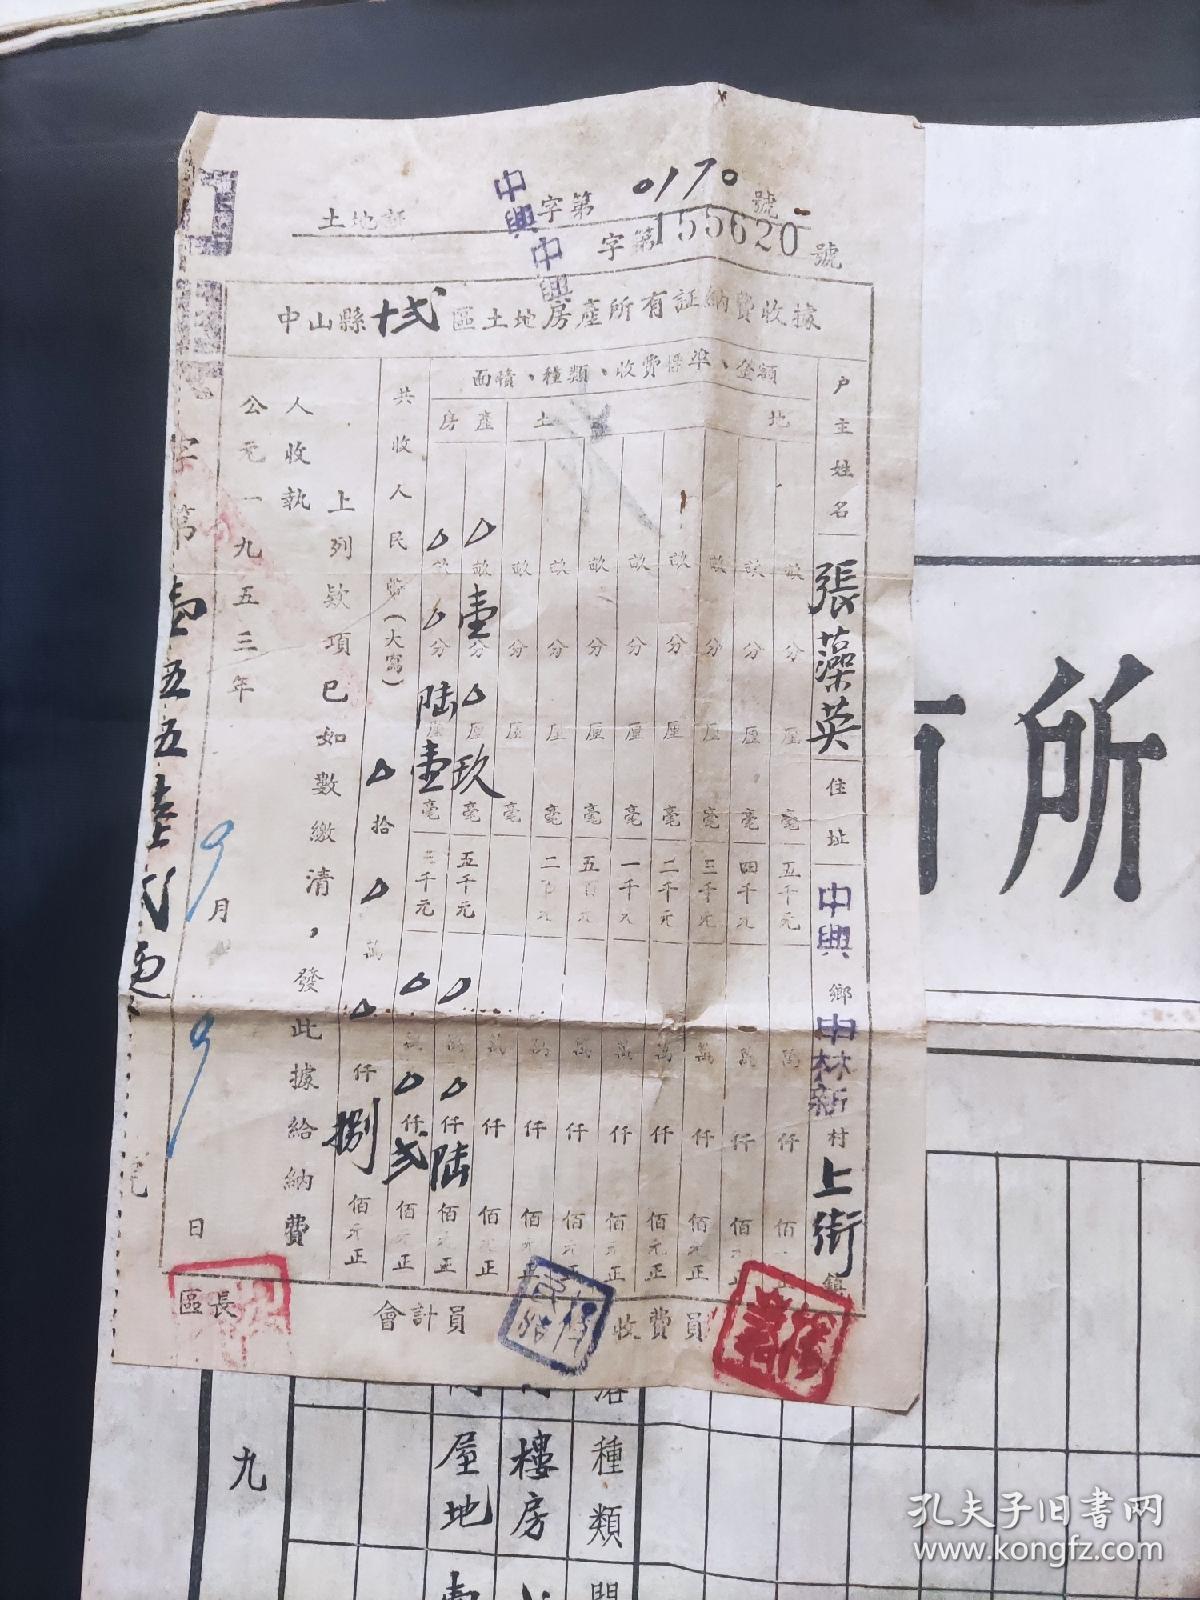 土地証 中興 字第 0170 號
中興 字第 155620 號
中山縣十弍區土地房產所有証納費收據
戶主姓名 張藻英 住址 中興 鄉 中林新 村 上街 鎮
面積、種類、收費標準、金額
土 地
畝 分 厘 毫 五千元 萬 仟 佰
畝 分 厘 毫 四千元 萬 仟 佰元
畝 分 厘 毫 三千元 萬 仟 佰元正
畝 分 厘 毫 二千元 萬 仟 佰元正
畝 分 厘 毫 一千元 萬 仟 佰元正
畝 分 厘 毫 五百元 萬 仟 佰元正
畝 分 厘 毫 萬 仟 佰元正
畝 分 厘 毫 萬 仟 佰元正
房產
△畝壹分△厘玖毫 五千元 △萬△仟陆佰元正
△畝△分陆厘壹毫 三千元 △萬△仟弍佰元正
共收人民幣(大寫) △拾△萬△仟捌佰元正
上列欵項已如數繳清，發此據給納費
人收執
公元一九五三年 9 月 9 日
字第壹五五陸弍零
區長
會計員
收費員
所
九
屋地
樓房
種類
孔夫子旧書网
www.kongfz.com